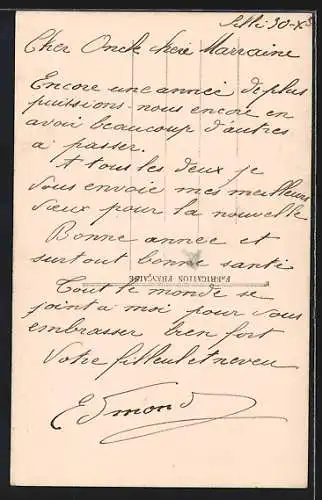 30-X
Cher Oncle chère Marraine
Encore une année de plus
puissions-nous encore en
avoir beaucoup d'autres
à passer.
A tous les deux je
vous envoie mes meilleurs
vœux pour la nouvelle
Bonne année et
surtout bonne santé
FABRICATION FRANÇAISE
Tout le monde se
joint à moi pour vous
embrasser bien fort
Votre filleul et neveu
Edmond